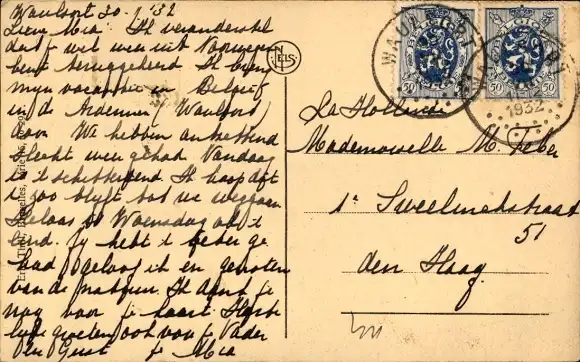 Waulsort 30 - '32
Lieve Mia! Ik veronderstel
dat je wel weer uit Noorwegen
bent teruggekeerd. Ik breng
mijn vacantie in België
in de Ardennen (Waulsort)
door. We hebben ontzettend
slecht weer gehad. Vandaag
is 't schitterend. Ik hoop dat
't zoo blijft tot we weggaan
Helaas is Woensdag al 't
eind. Jij hebt 't beter ge
had geloof ik en genoten
van de natuur. Ik dank je
nog voor je kaart. Harte
lijke groeten ook voor je Vader
en je Mia
NELS
WAULSORT
1932
50
50
50
50
La Hollande
Mademoiselle M. Faber
1e Sweelinckstraat
51
den Haag
Ern. Thill, Bruxelles